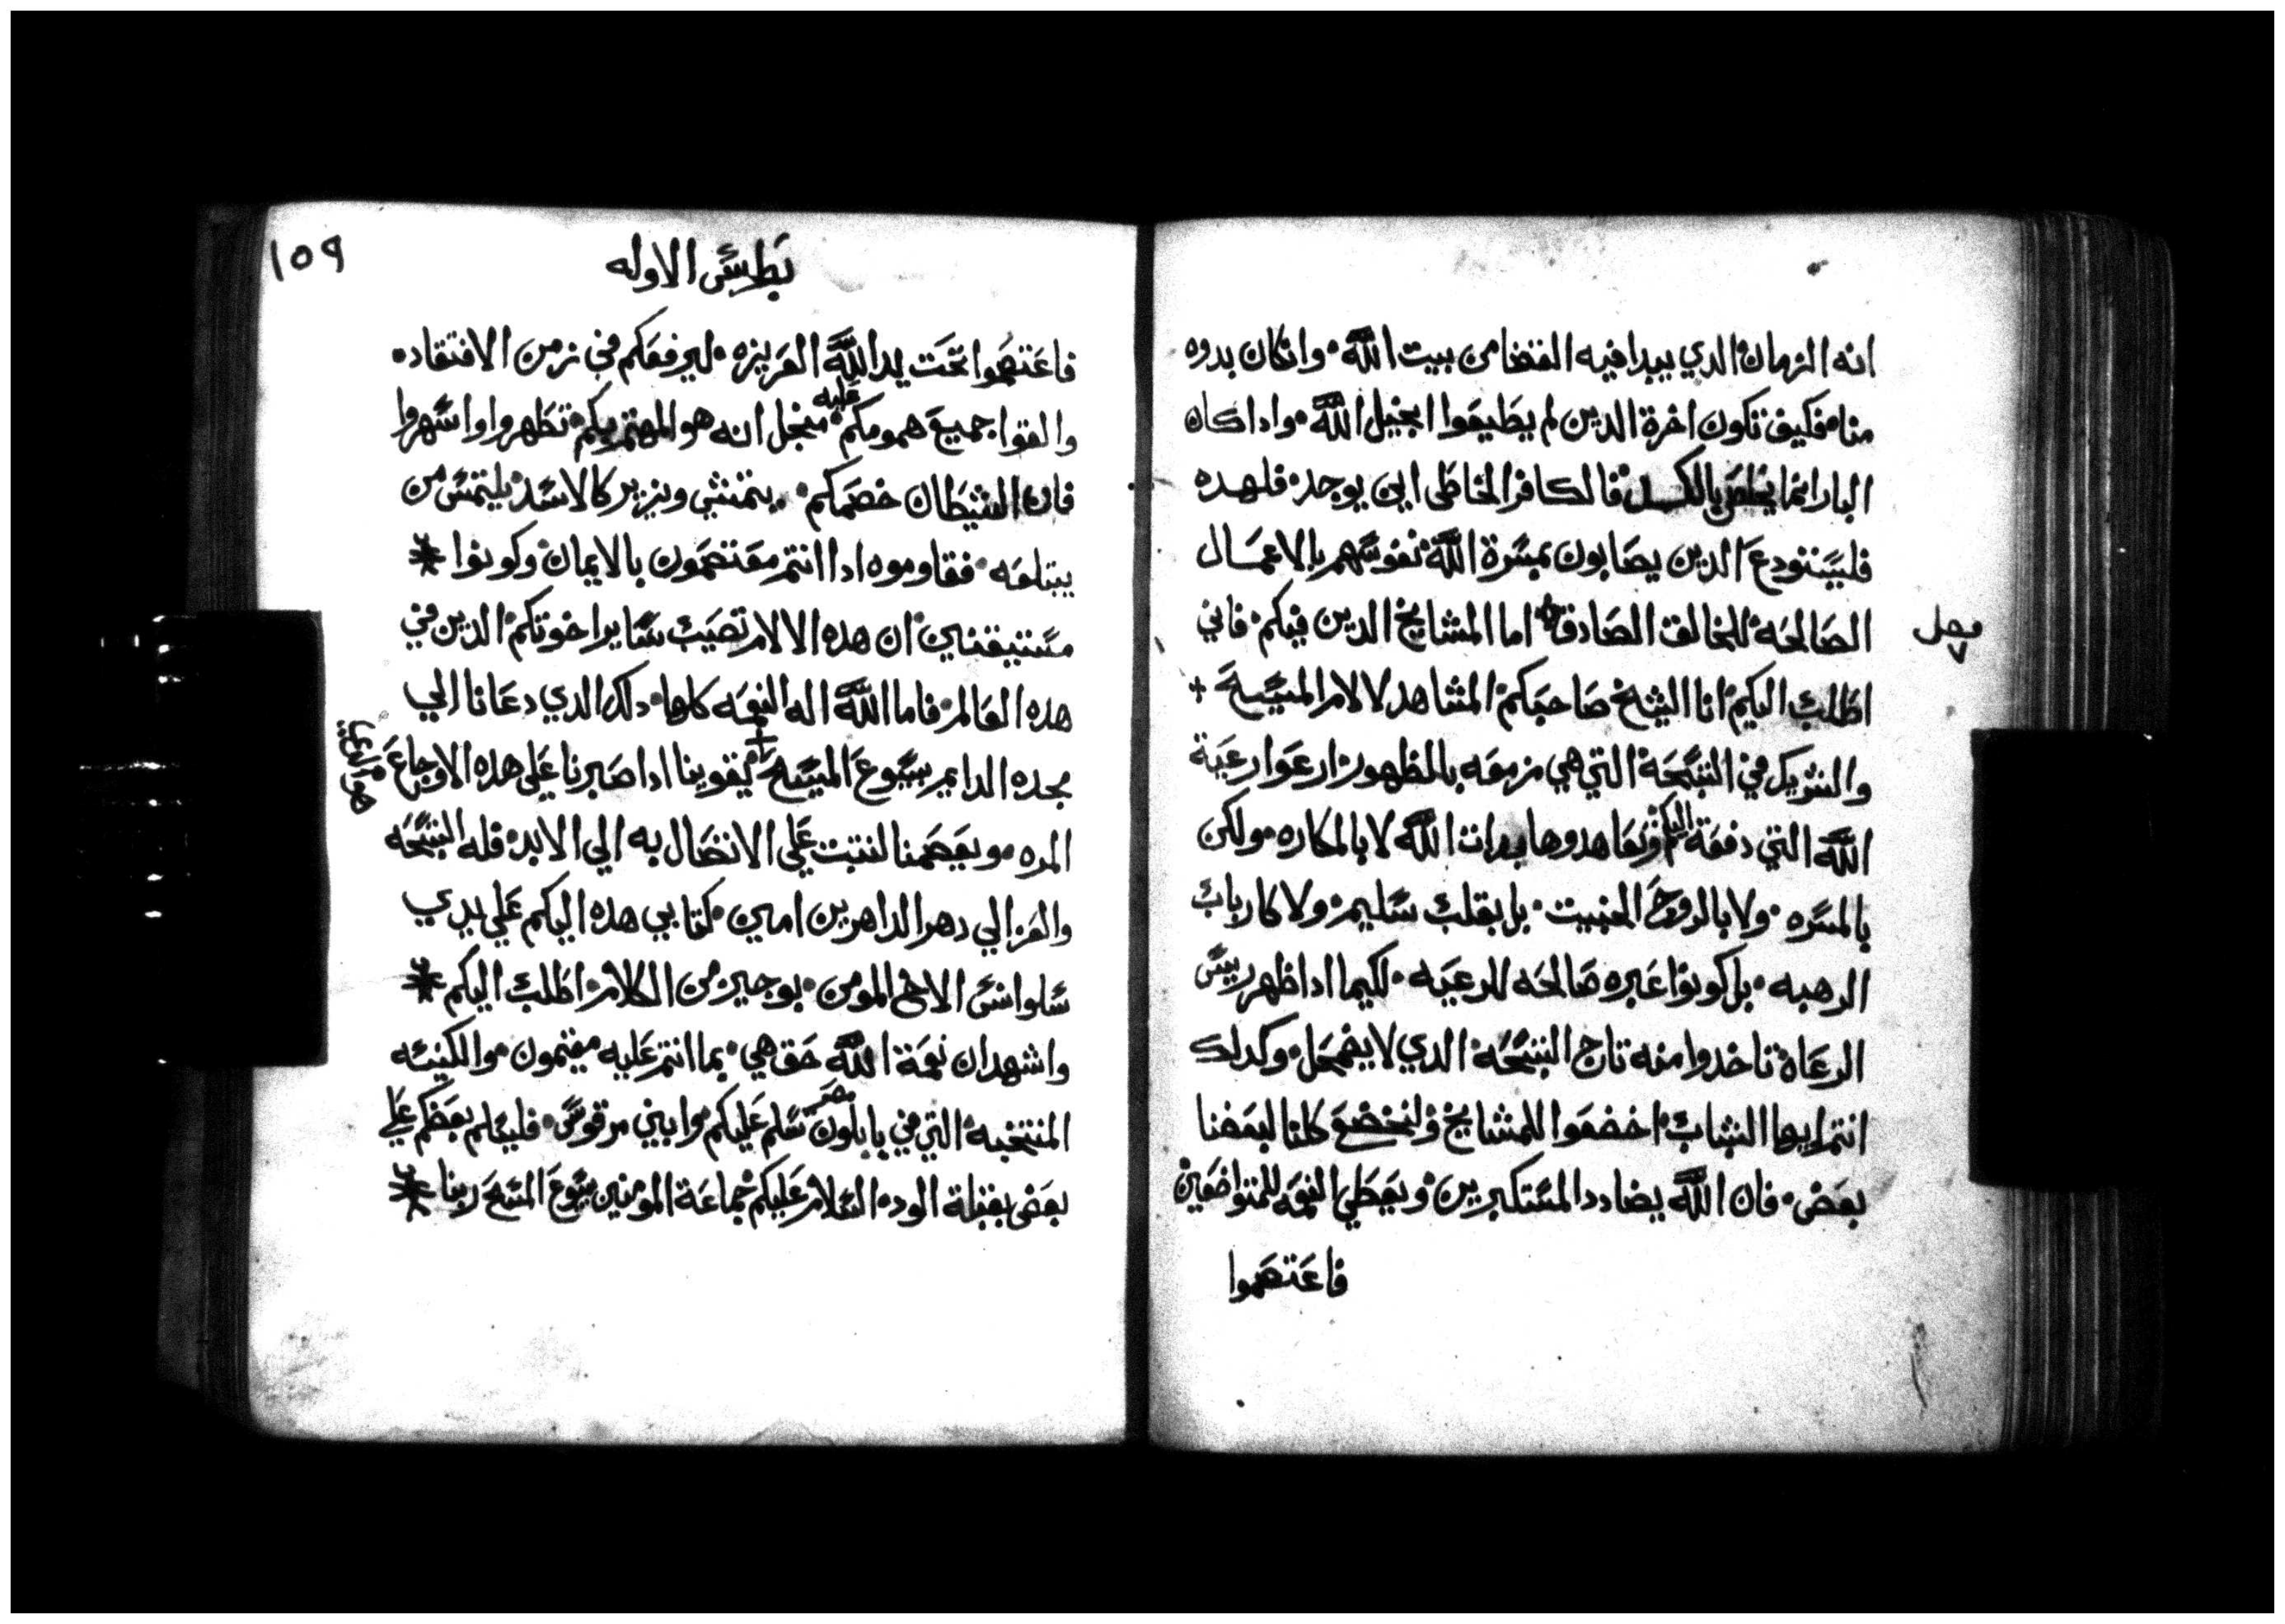 انه الزمان الدي يبدا فيه القضا من بيت الله • وان كان بدوه
منا • فكيف تكون اخرة الدين لم يطيعوا انجيل الله • وادا كان
البار انما يخلص بالكسل فالكافر الخاطى اين يوجد • فلهده
فليستودع الدين يصابون بمسرة الله نفوسهم بالاعمال
الصالحه • للخالق الصادق اما المشايخ الدين فيكم • فاني
فصل
اطلب اليكم انا الشيخ صاحبكم • المشاهد لالام المسيح +
والشريك في السبحة التي هي مزمعه بالظهور • ارعوا رعية
الله التي دفعة اليكم وتعاهدوها بدات الله لا بالمكاره • ولكن
بالمسره • ولا بالروح الخبيت • بل بقلب سليم • ولا كارباب
الرهبه • بل كونوا عبره صالحه للرعيه • لكيما ادا ظهر رييس
الرعاة تاخدوا منه تاج السبحه • الدي لا يضمحل • وكدلك
انتم ايها الشباب • اخضعوا للمشايخ ولنخضع كلنا لبعضنا
بعض • فان الله يضادد المستكبرين • ويعطي النعمه للمتواضعين
فاعتصموا
١٥٩
بطرس الاوله
فاعتصموا تحت يد الله العزيزه • ليرفعكم في زمن الافتقاد •
والقوا جميع همومكم عليه • منجل انه هو المهتم بكم • تطهروا واسهروا
فان الشيطان خصمكم • يتمشي ويزير كالاسد • يلتمس من
يبتلعه • فقاوموه ادا انتم معتصمون بالايمان • وكونوا
مستيقنين • ان هده الالام تصيب ساير اخوتكم • الدين في
هده العالم • فاما الله اله النعمه كلها • دلك الدي دعانا الي
مجده الدايم بيسوع المسيح • ليقوينا ادا صبرنا على هده الاوجاع
المره • ويعصمنا لنتبت علي الاتصال به الي الابد • فله السبحه
والعز الي دهر الداهرين امين • كتابي هده اليكم علي يدي
سلوانس الاخ المومن • بوجيز من الكلام • اطلب اليكم
واشهد ان نعمة الله حق هي • بما انتم عليه مقيمون • والكنيسه
المنتخبه • التي في بابلون مصر سلم عليكم • وابني مرقوس • فليسلم بعضكم علي
بعض بقبلة الود • السلام عليكم • جماعة المومنين بيسوع المسيح ربنا